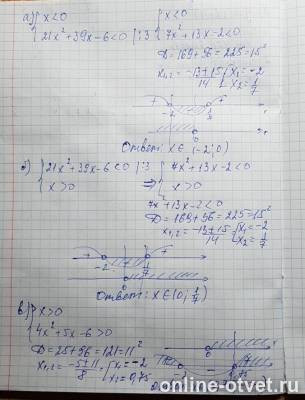 а) { x<0
{ 21x²+39x-6<0 |:3
{ x<0
{ 7x²+13x-2<0
D=169+56=225=15²
x₁,₂= -13±15/14 [ x₁=-2
x₂=1/7
+ - +
-2 1/7
0
Ответ: x∈(-2;0)
б) { 21x²+39x-6<0 |:3
{ x>0
⇒ { 7x²+13x-2<0
{ x>0
7x²+13x-2<0
D=169+56=225=15²
x₁,₂= -13±15/14 [ x₁=-2
x₂=1/7
+ - +
-2 1/7
0
Ответ: x∈(0; 1/7)
в) { x>0
{ 4x²+5x-6>0
D=25+96=121=11²
x₁,₂= -5±11/8 [ x₁=-2
x₂=0,75
0
online-otvet.ru